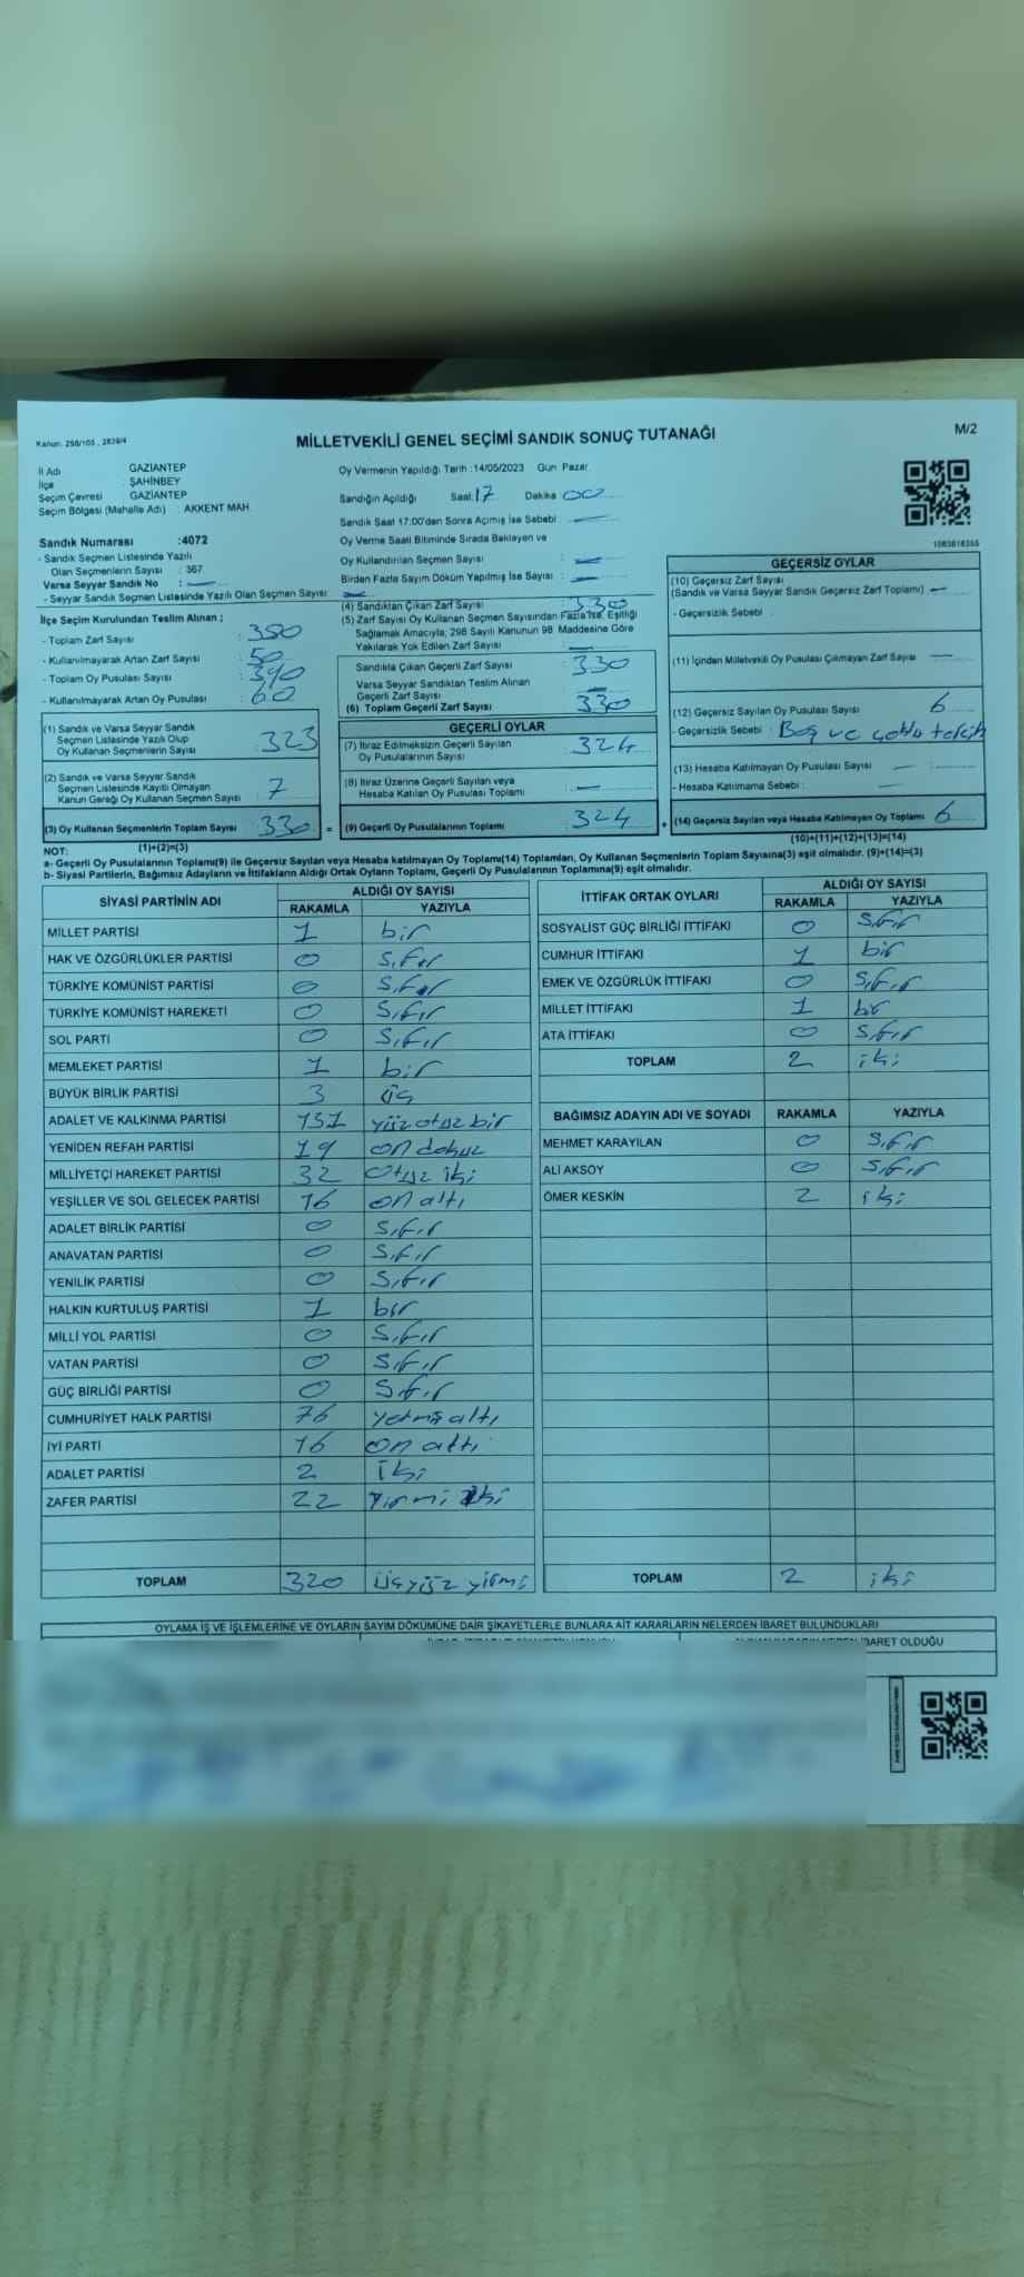 Kanun: 298/105 , 2839/4
MİLLETVEKİLİ GENEL SEÇİMİ SANDIK SONUÇ TUTANAĞI
M/2
İl Adı GAZİANTEP
İlçe ŞAHİNBEY
Seçim Çevresi GAZİANTEP
Seçim Bölgesi (Mahalle Adı) : AKKENT MAH
Oy Vermenin Yapıldığı Tarih :14/05/2023 Gün Pazar
Sandığın Açıldığı Saat: 17 Dakika 00
Sandık Saat 17:00'den Sonra Açmış İse Sebebi —
Oy Verme Saati Bitiminde Sırada Bekleyen ve
Oy Kullandırılan Seçmen Sayısı : —
Birden Fazla Sayım Döküm Yapılmış İse Sayısı : —
Sandık Numarası :4072
- Sandık Seçmen Listesinde Yazılı
Olan Seçmenlerin Sayısı : 367
Varsa Seyyar Sandık No : —
- Seyyar Sandık Seçmen Listesinde Yazılı Olan Seçmen Sayısı: —
İlçe Seçim Kurulundan Teslim Alınan ;
- Toplam Zarf Sayısı : 380
- Kullanılmayarak Artan Zarf Sayısı : 50
- Toplam Oy Pusulası Sayısı : 390
- Kullanılmayarak Artan Oy Pusulası : 60
(1) Sandık ve Varsa Seyyar Sandık
Seçmen Listesinde Yazılı Olup
Oy Kullanan Seçmenlerin Sayısı 323
(2) Sandık ve Varsa Seyyar Sandık
Seçmen Listesinde Kayıtlı Olmayan
Kanun Gereği Oy Kullanan Seçmen Sayısı 7
(3) Oy Kullanan Seçmenlerin Toplam Sayısı 330 =
(4) Sandıktan Çıkan Zarf Sayısı 330
(5) Zarf Sayısı Oy Kullanan Seçmen Sayısından Fazla İse, Eşitliği
Sağlamak Amacıyla; 298 Sayılı Kanunun 98. Maddesine Göre
Yakılarak Yok Edilen Zarf Sayısı —
Sandıkta Çıkan Geçerli Zarf Sayısı : 330
Varsa Seyyar Sandıktan Teslim Alınan
Geçerli Zarf Sayısı —
(6) Toplam Geçerli Zarf Sayısı 330
GEÇERLİ OYLAR
(7) İtiraz Edilmeksizin Geçerli Sayılan
Oy Pusulalarının Sayısı 324
(8) İtiraz Üzerine Geçerli Sayılan veya
Hesaba Katılan Oy Pusulası Toplamı —
(9) Geçerli Oy Pusulalarının Toplamı 324 +
GEÇERSİZ OYLAR
(10) Geçersiz Zarf Sayısı
(Sandık ve Varsa Seyyar Sandık Geçersiz Zarf Toplamı) —
- Geçersizlik Sebebi
(11) İçinden Milletvekili Oy Pusulası Çıkmayan Zarf Sayısı —
(12) Geçersiz Sayılan Oy Pusulası Sayısı 6
- Geçersizlik Sebebi : Boş ve çoklu tercih
(13) Hesaba Katılmayan Oy Pusulası Sayısı —
- Hesaba Katılmama Sebebi : —
(14) Geçersiz Sayılan veya Hesaba Katılmayan Oy Toplamı 6
NOT: (1)+(2)=(3) (10)+(11)+(12)+(13)=(14)
a- Geçerli Oy Pusulalarının Toplamı(9) ile Geçersiz Sayılan veya Hesaba katılmayan Oy Toplamı(14) Toplamları, Oy Kullanan Seçmenlerin Toplam Sayısına(3) eşit olmalıdır. (9)+(14)=(3)
b- Siyasi Partilerin, Bağımsız Adayların ve İttifakların Aldığı Ortak Oyların Toplamı, Geçerli Oy Pusulalarının Toplamına(9) eşit olmalıdır.
SİYASİ PARTİNİN ADI ALDIĞI OY SAYISI
RAKAMLA YAZIYLA
MİLLET PARTİSİ 1 bir
HAK VE ÖZGÜRLÜKLER PARTİSİ 0 sıfır
TÜRKİYE KOMÜNİST PARTİSİ 0 sıfır
TÜRKİYE KOMÜNİST HAREKETİ 0 sıfır
SOL PARTİ 0 sıfır
MEMLEKET PARTİSİ 1 bir
BÜYÜK BİRLİK PARTİSİ 3 üç
ADALET VE KALKINMA PARTİSİ 131 yüz otuz bir
YENİDEN REFAH PARTİSİ 19 on dokuz
MİLLİYETÇİ HAREKET PARTİSİ 32 otuz iki
YEŞİLLER VE SOL GELECEK PARTİSİ 16 on altı
ADALET BİRLİK PARTİSİ 0 sıfır
ANAVATAN PARTİSİ 0 sıfır
YENİLİK PARTİSİ 0 sıfır
HALKIN KURTULUŞ PARTİSİ 1 bir
MİLLİ YOL PARTİSİ 0 sıfır
VATAN PARTİSİ 0 sıfır
GÜÇ BİRLİĞİ PARTİSİ 0 sıfır
CUMHURİYET HALK PARTİSİ 76 yetmiş altı
İYİ PARTİ 16 on altı
ADALET PARTİSİ 2 iki
ZAFER PARTİSİ 22 yirmi iki
TOPLAM 320 üçyüz yirmi
İTTİFAK ORTAK OYLARI ALDIĞI OY SAYISI
RAKAMLA YAZIYLA
SOSYALİST GÜÇ BİRLİĞİ İTTİFAKI 0 sıfır
CUMHUR İTTİFAKI 1 bir
EMEK VE ÖZGÜRLÜK İTTİFAKI 0 sıfır
MİLLET İTTİFAKI 1 bir
ATA İTTİFAKI 0 sıfır
TOPLAM 2 iki
BAĞIMSIZ ADAYIN ADI VE SOYADI RAKAMLA YAZIYLA
MEHMET KARAYILAN 0 sıfır
ALİ AKSOY 0 sıfır
ÖMER KESKİN 2 iki
TOPLAM 2 iki
OYLAMA İŞ VE İŞLEMLERİNE VE OYLARIN SAYIM DÖKÜMÜNE DAİR ŞİKAYETLERLE BUNLARA AİT KARARLARIN NELERDEN İBARET BULUNDUKLARI
OLDUĞU